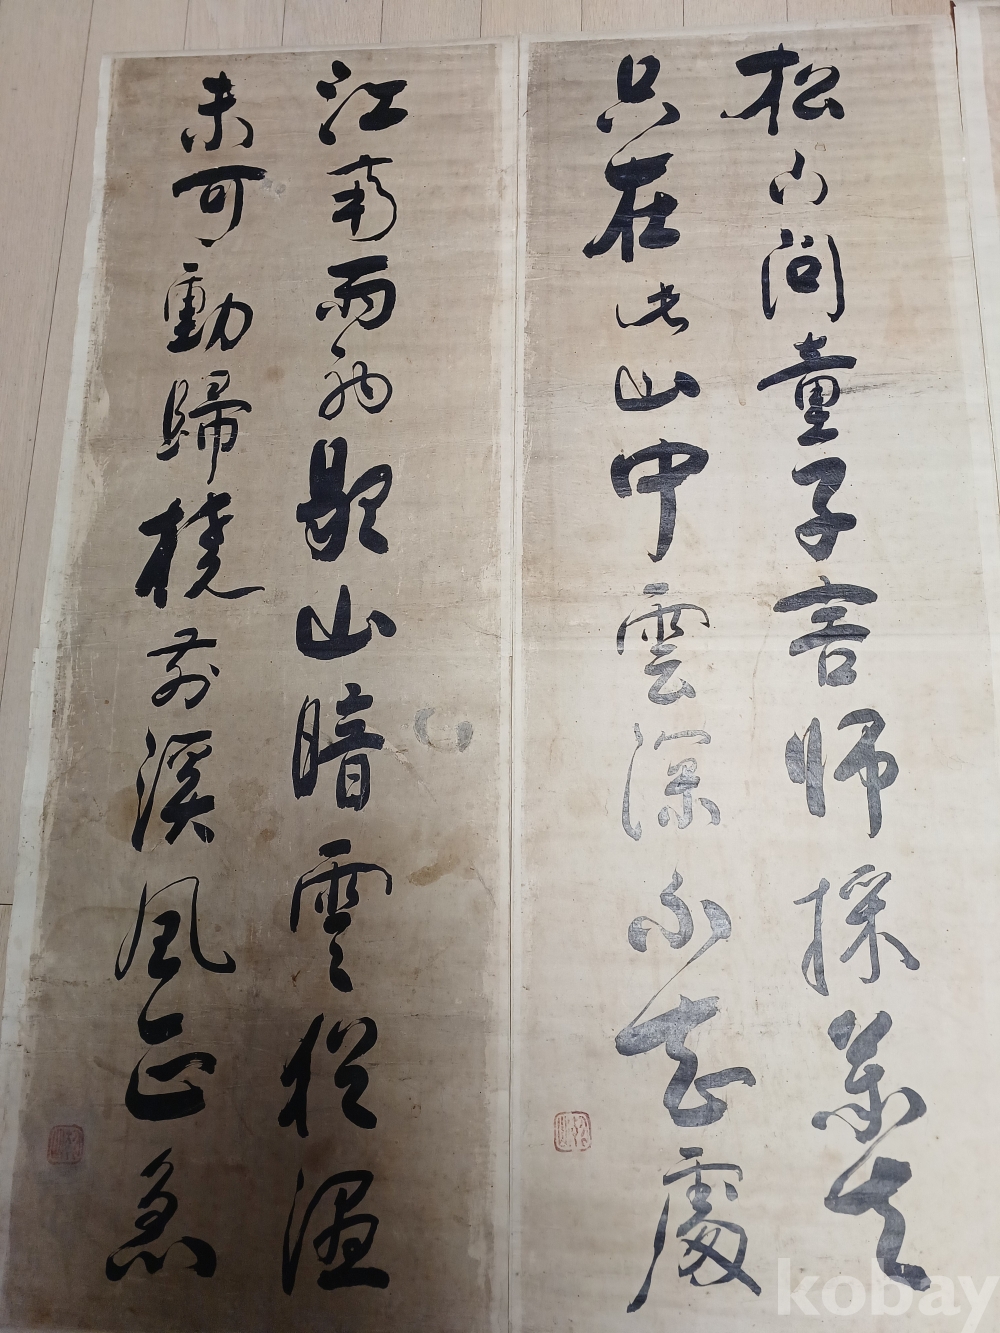 松下問童子言師採藥去
只在此山中雲深不知處
江南雨初歇山暗雲猶濕
未可動歸橈前溪風正急
kobay